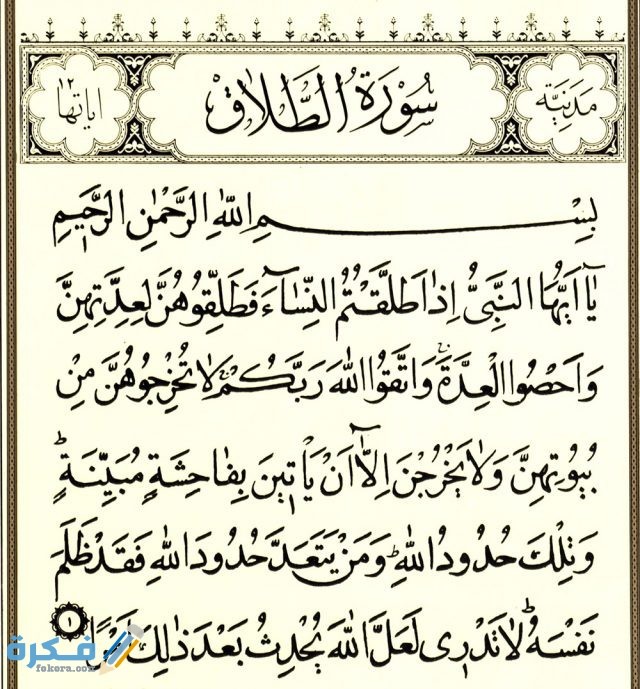 مَدَنِيَّة
سُورَةُ الطَّلَاقِ
اٰيَاتُهَا ١٢
بِسْمِ اللّٰهِ الرَّحْمٰنِ الرَّحٖيمِ
يَٓا اَيُّهَا النَّبِىُّ اِذَا طَلَّقْتُمُ النِّسَٓاءَ فَطَلِّقُوهُنَّ لِعِدَّتِهِنَّ
وَاَحْصُوا الْعِدَّةَۚ وَاتَّقُوا اللّٰهَ رَبَّكُمْۚ لَا تُخْرِجُوهُنَّ مِنْ
بُيُوتِهِنَّ وَلَا يَخْرُجْنَ اِلَّٓا اَنْ يَأْتٖينَ بِفَاحِشَةٍ مُبَيِّنَةٍۜ
وَتِلْكَ حُدُودُ اللّٰهِۜ وَمَنْ يَتَعَدَّ حُدُودَ اللّٰهِ فَقَدْ ظَلَمَ
نَفْسَهُۜ لَا تَدْرٖى لَعَلَّ اللّٰهَ يُحْدِثُ بَعْدَ ذٰلِكَ اَمْرًا ١
فكرة
fokera.com